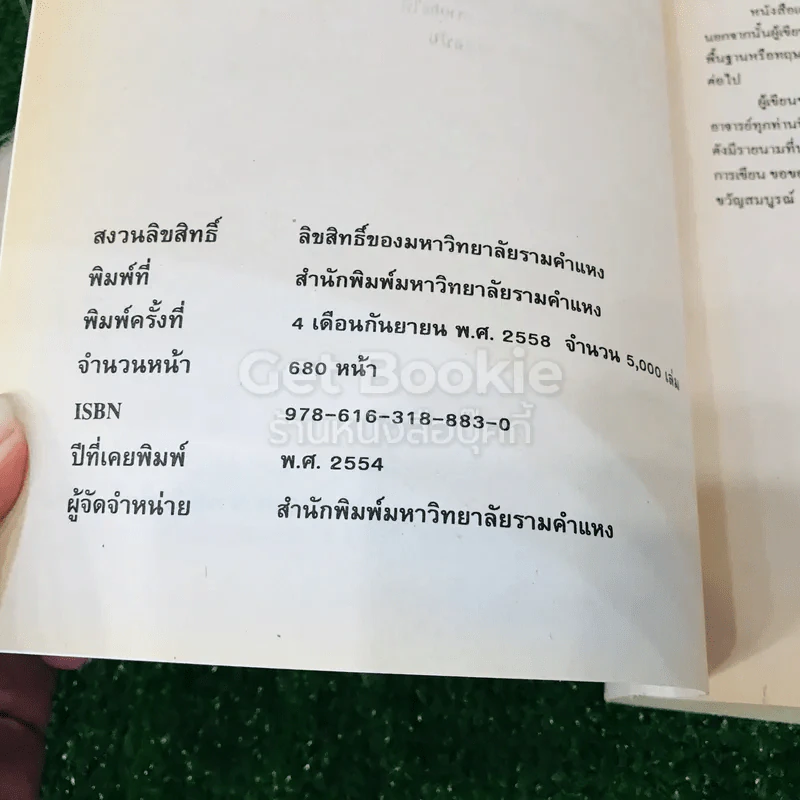 สงวนลิขสิทธิ์ ลิขสิทธิ์ของมหาวิทยาลัยรามคำแหง
พิมพ์ที่ สำนักพิมพ์มหาวิทยาลัยรามคำแหง
พิมพ์ครั้งที่ 4 เดือนกันยายน พ.ศ. 2558 จำนวน 5,000 เล่ม
จำนวนหน้า 680 หน้า
ISBN 978-616-318-883-0
ปีที่เคยพิมพ์ พ.ศ. 2554
ผู้จัดจำหน่าย สำนักพิมพ์มหาวิทยาลัยรามคำแหง
Get Bookie
ร้านหนังสือบุ๊คกี้
หนังสือ
นอกจากนั้นผู้เขีย
พื้นฐานหรือทฤษ
ต่อไป
ผู้เขียน
อาจารย์ทุกท่าน
ดังมีรายนามที่
การเขียน ขอขอ
ขวัญสมบูรณ์